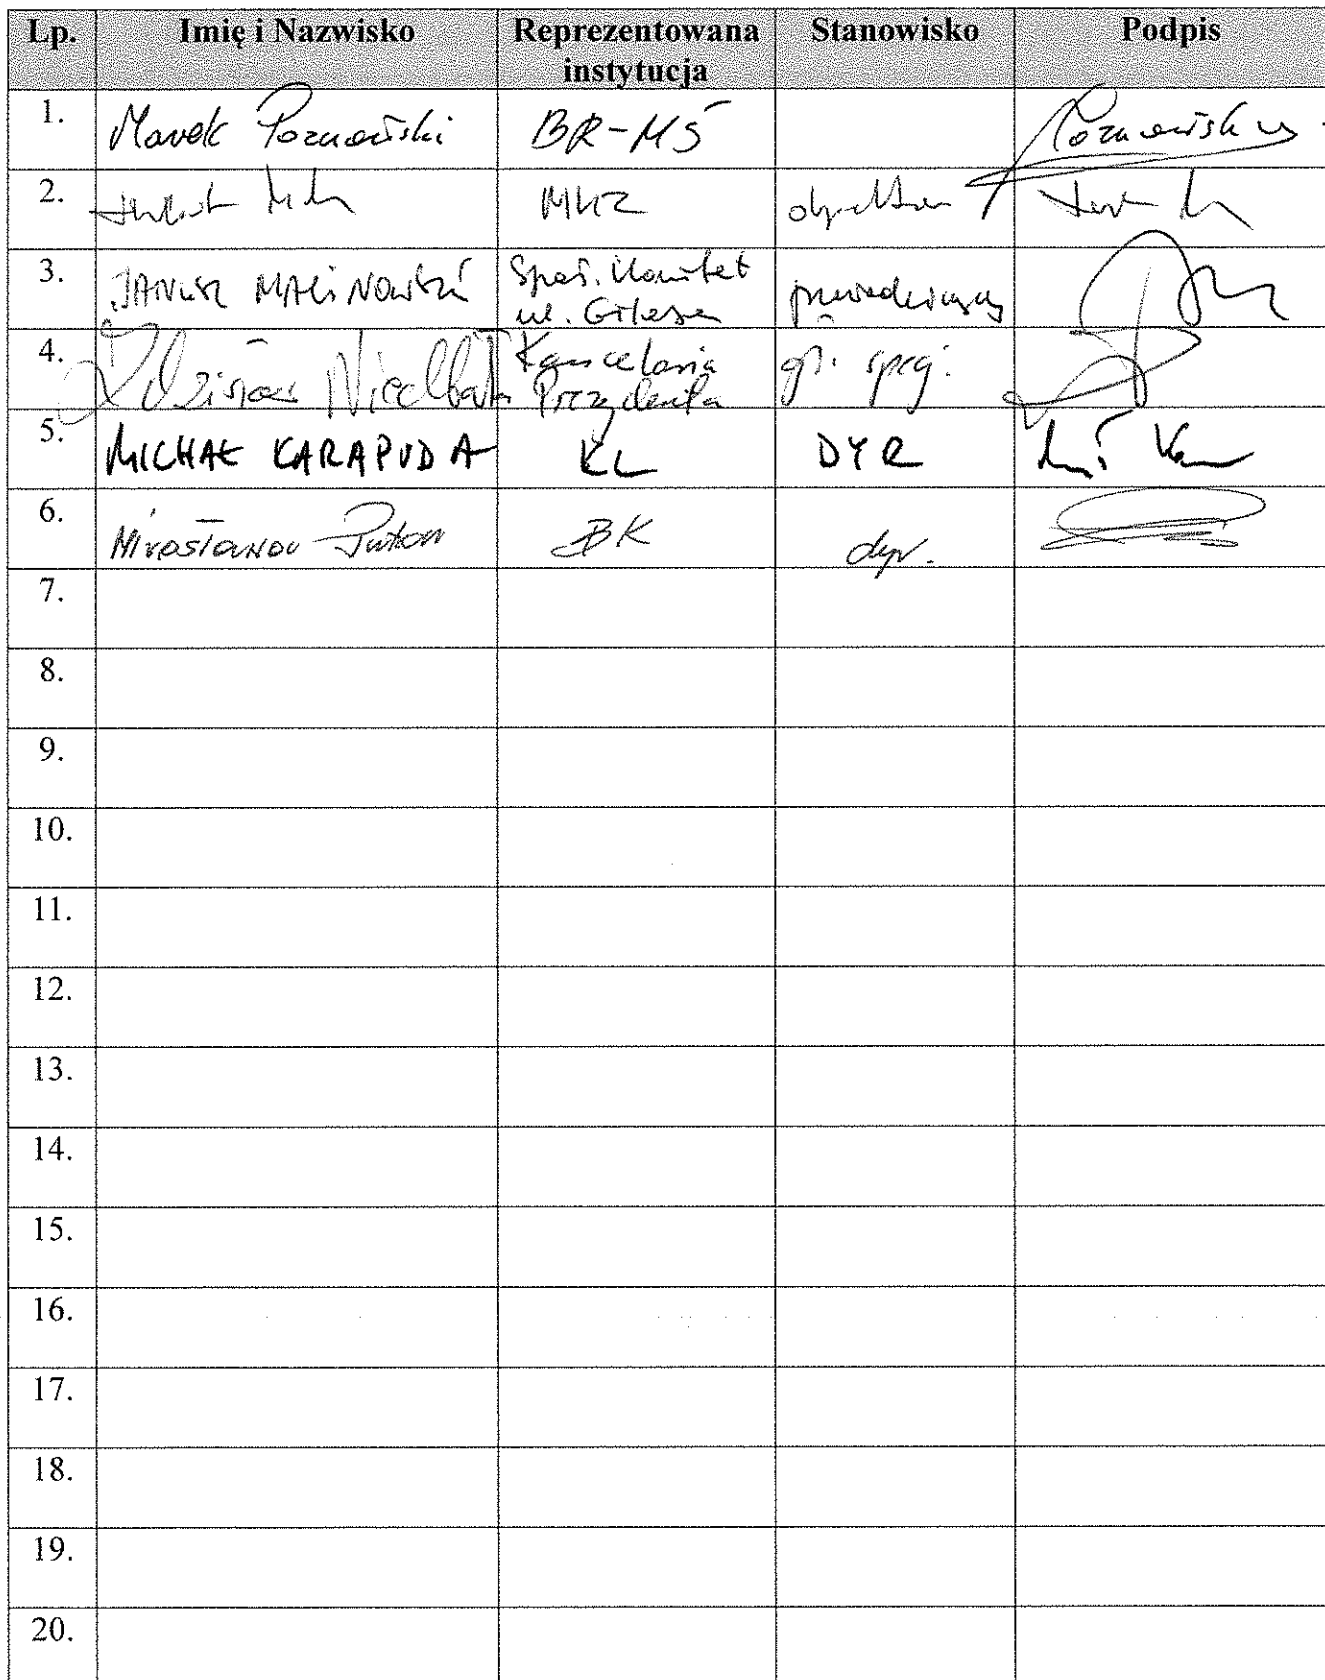 Lp. Imię i Nazwisko Reprezentowana instytucja Stanowisko Podpis
1. Marek Poznański BR-MŚ
2. MKZ
3. JANUSZ MALINOWSKI Społ. Komitet
ul. przewodniczący
4. Zdzisław Kancelaria
Prezydenta gł. spec.
5. MICHAŁ KARAPUDA KL DYR
6. Mirosław BK dyr.
7.
8.
9.
10.
11.
12.
13.
14.
15.
16.
17.
18.
19.
20.